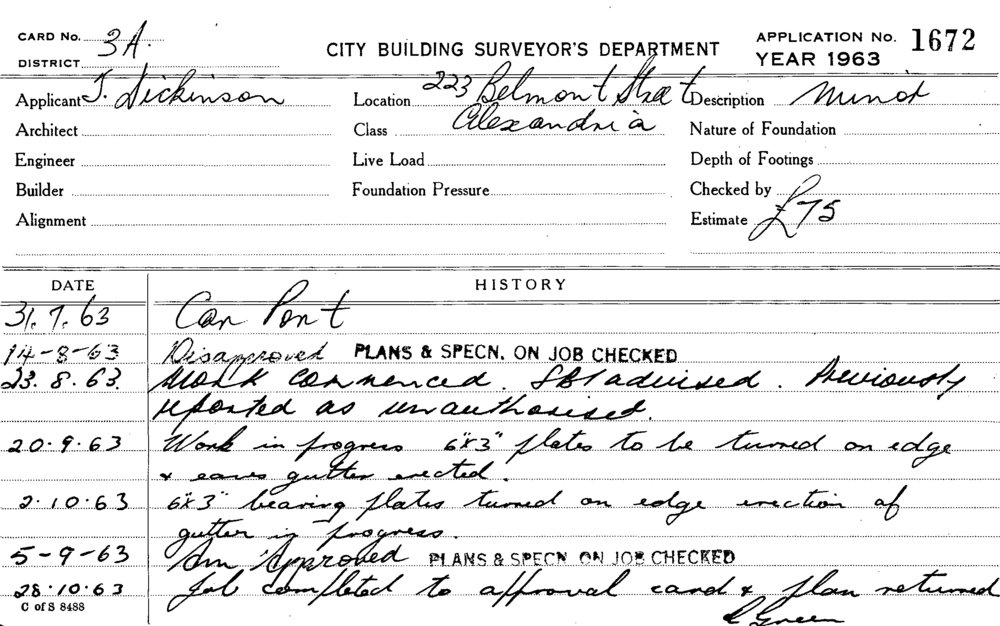 CARD No. 3A.
DISTRICT
CITY BUILDING SURVEYOR'S DEPARTMENT
APPLICATION No. 1672
YEAR 1963
Applicant T. Dickinson
Location 223 Belmont Street
Description Minor
Architect
Class Alexandria
Nature of Foundation
Engineer
Live Load
Depth of Footings
Builder
Foundation Pressure
Checked by
Alignment
Estimate £75
DATE HISTORY
31.7.63 Car Port
14-8-63 Disapproved PLANS & SPECN. ON JOB CHECKED
23.8.63. Work commenced. SBI advised. Previously
reported as unauthorised.
20.9.63 Work in progress 6"x3" plates to be turned on edge
& eaves gutter erected.
2.10.63 6"x3" bearing plates turned on edge erection of
gutter in progress.
5-9-63 Approved PLANS & SPECN ON JOB CHECKED
28.10.63 Job completed to approval card & plan returned
C of S 8488
Green